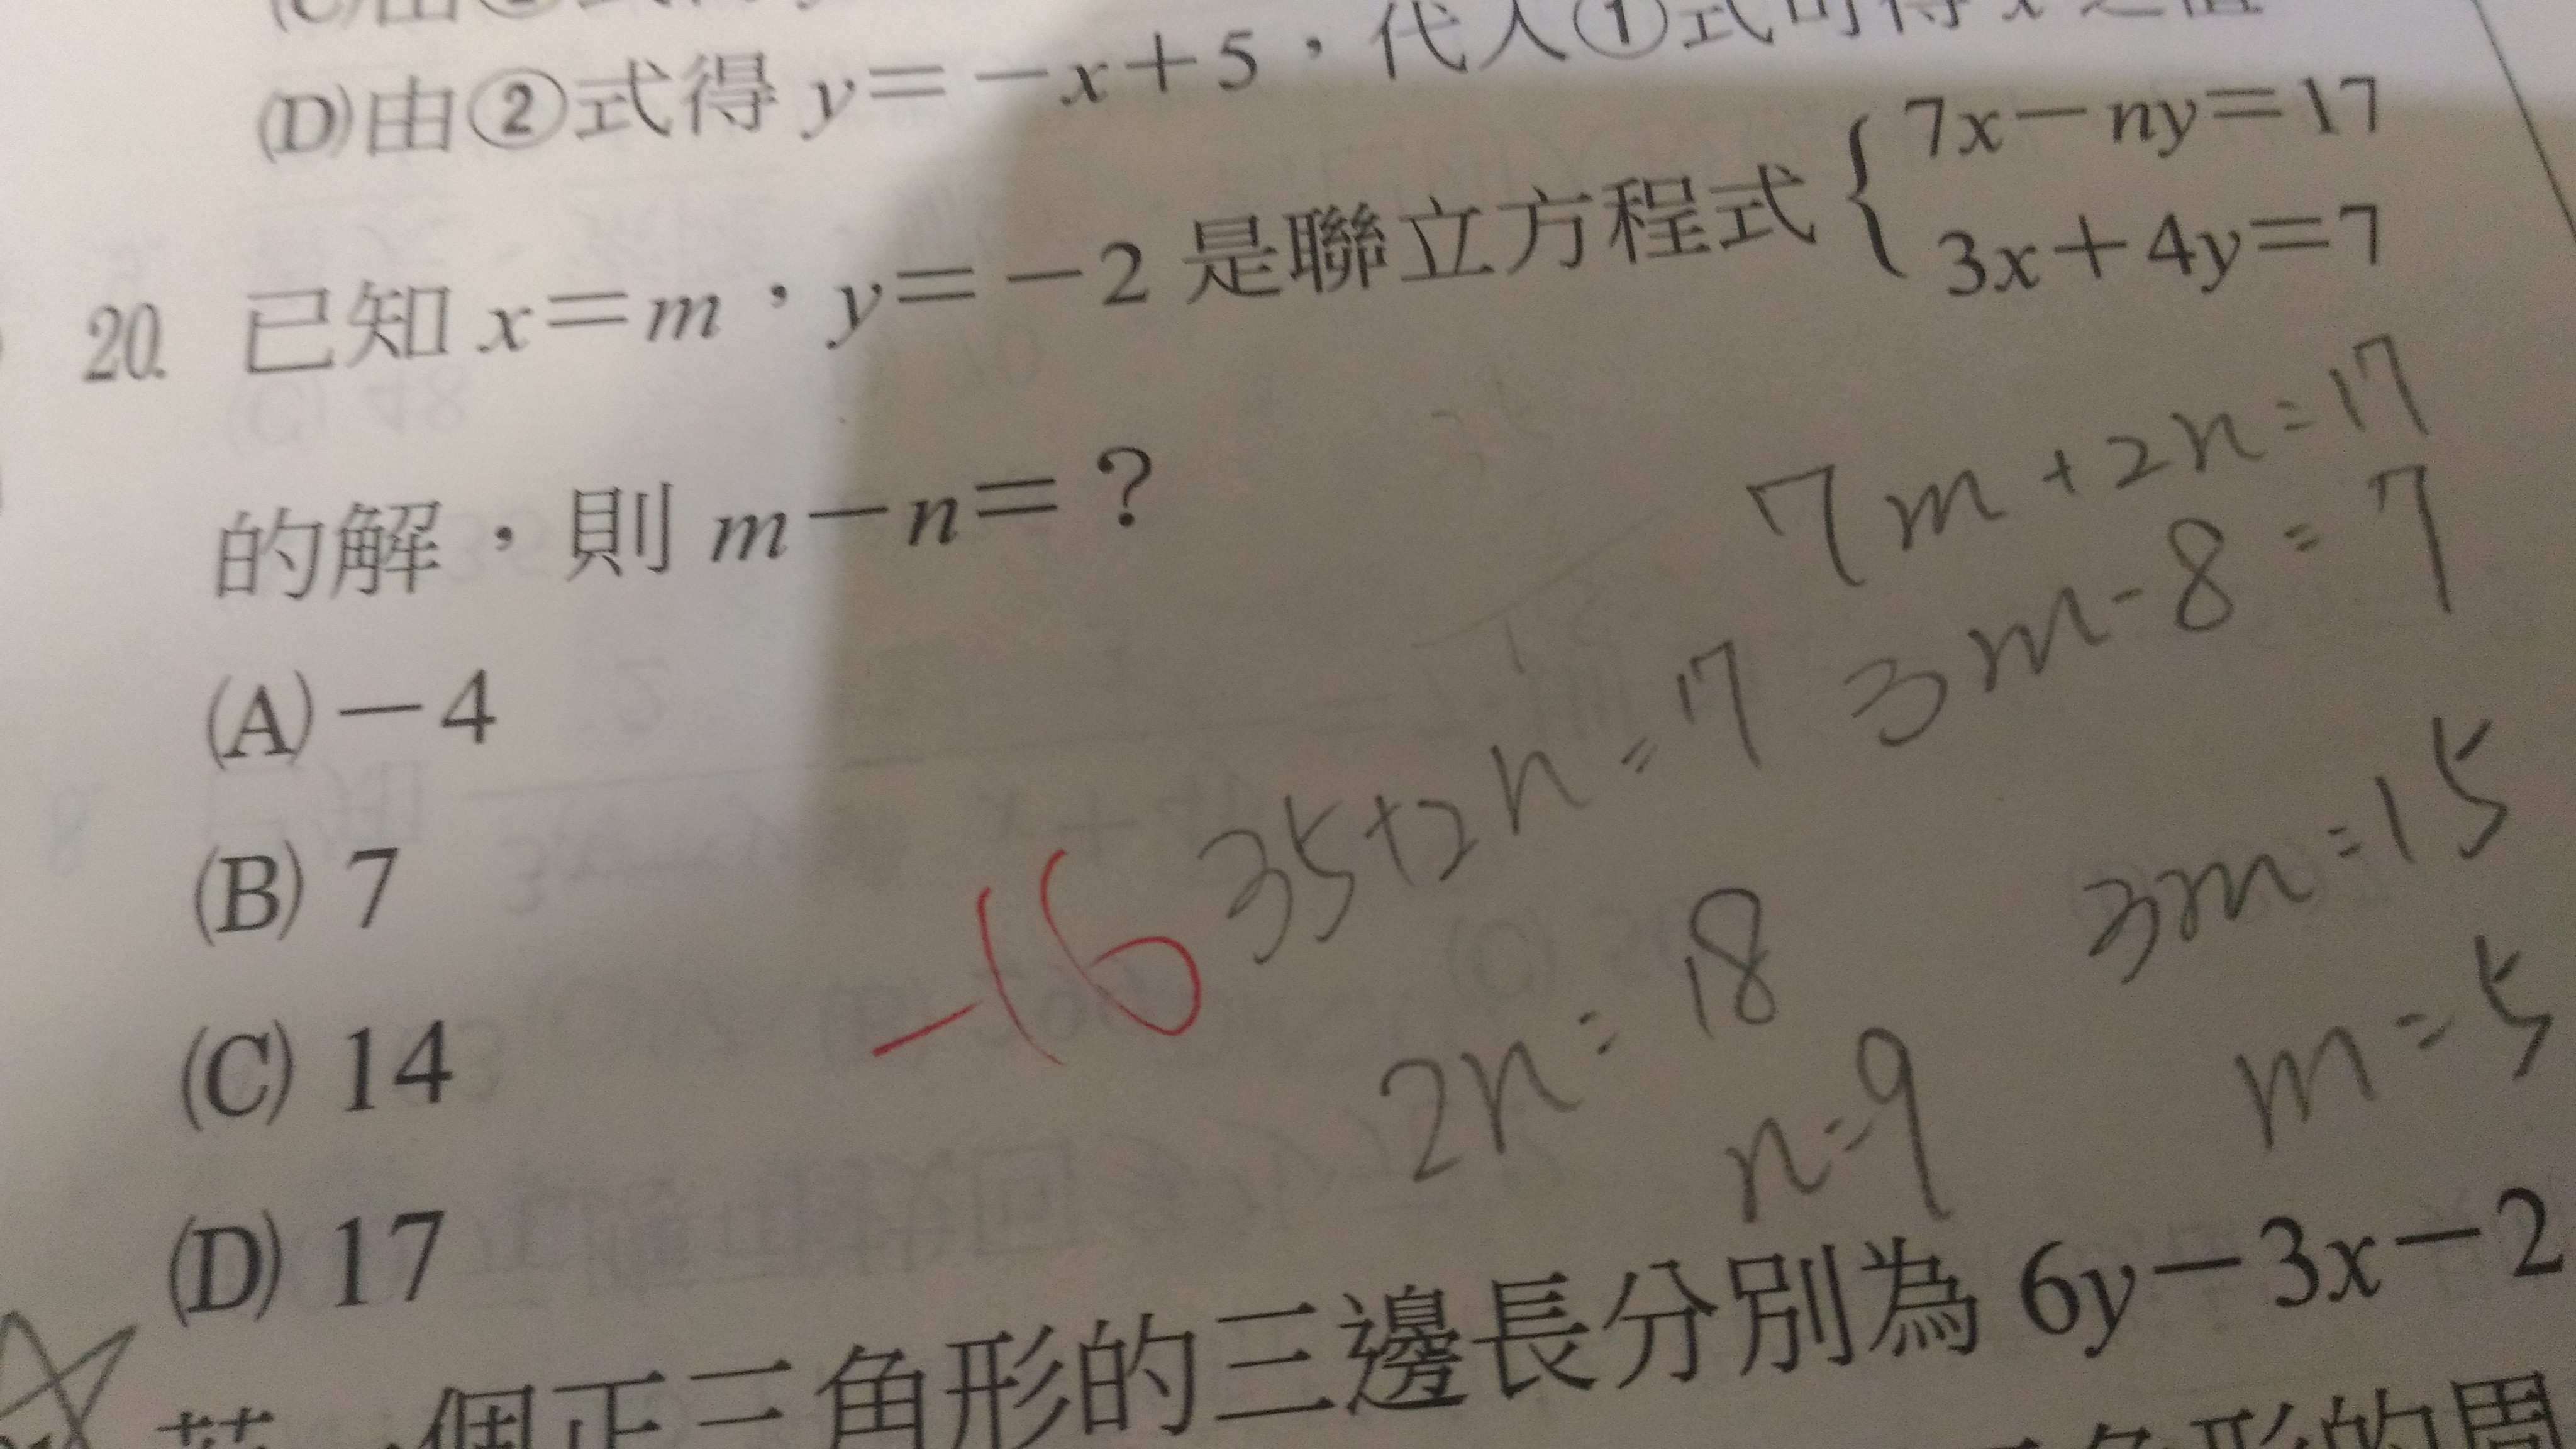 (D)由②式得 y=-x+5，代入①式可得 x 之值
20. 已知 x=m，y=-2 是聯立方程式 { 7x-ny=17
3x+4y=7
的解，則 m-n=？
(A) -4
(B) 7
(C) 14
(D) 17
7m+2n=17
3m-8=7
3m=15
m=5
35+2n=17
2n=18
n=9
-16
一個正三角形的三邊長分別為 6y-3x-2
角形的周